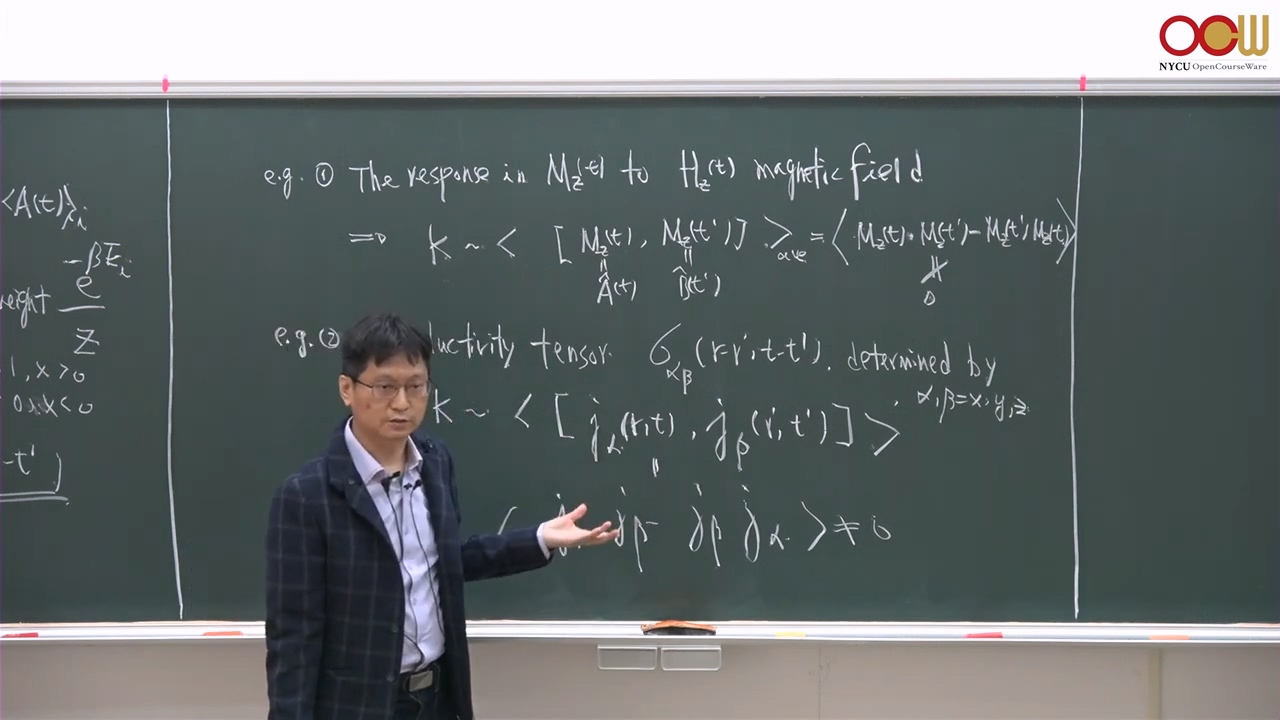 OCW
NYCU OpenCourseWare
<A(t)>_i
e^{-βE_i}
Z
1, x>0
0, x<0
-t')
e.g. ① The response in M_z(t) to H_z(t) magnetic field
⇒ K ~ < [M_z(t), M_z(t')] >_ave = <M_z(t)·M_z(t')-M_z(t')M_z(t)>
Â(t) B̂(t')
0
e.g. ② uctivity tensor σ_αβ(r-r', t-t'). determined by
K ~ < [j_α(r,t), j_β(r',t')] >, α,β=x,y,z
< j j_β - j_β j_α > ≠ 0